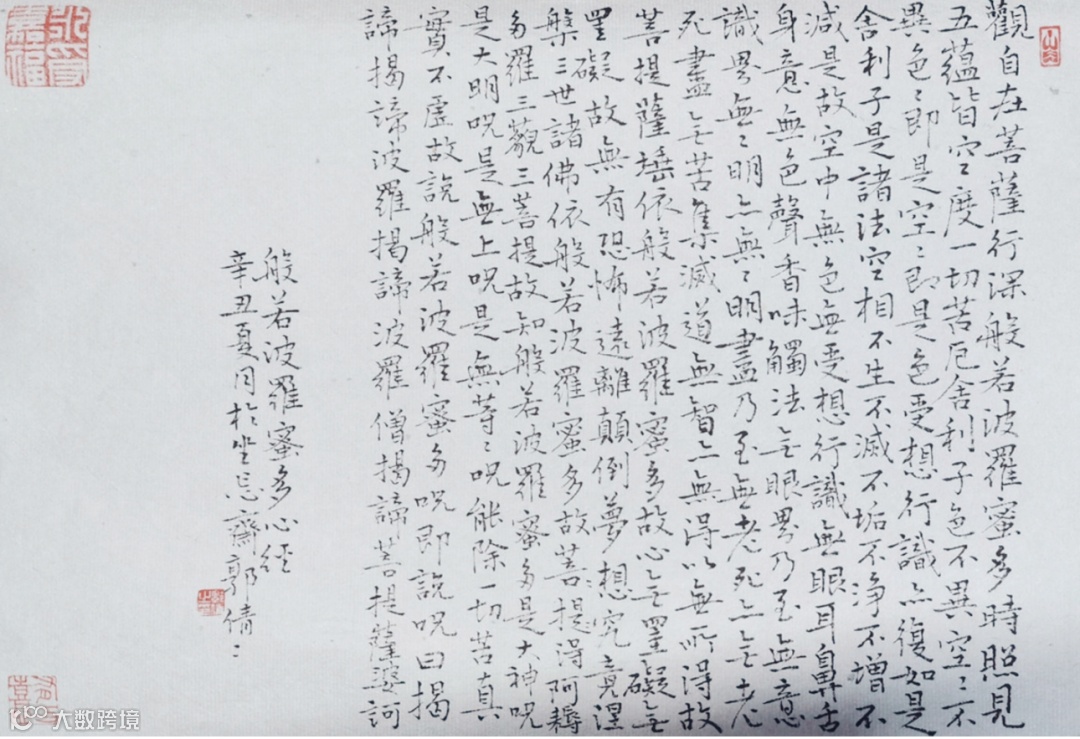 觀自在菩薩行深般若波羅蜜多時照見
五蘊皆空度一切苦厄舍利子色不異空〻不
異色〻即是空〻即是色受想行識亦復如是
舍利子是諸法空相不生不滅不垢不淨不增不
減是故空中無色無受想行識無眼耳鼻舌
身意無色聲香味觸法無眼界乃至無意
識界無〻明亦無〻明盡乃至無老死亦無老
死盡無苦集滅道無智亦無得以無所得故
菩提薩埵依般若波羅蜜多故心無罣礙無
罣礙故無有恐怖遠離顛倒夢想究竟涅
槃三世諸佛依般若波羅蜜多故菩提得阿耨
多羅三藐三菩提故知般若波羅蜜多是大神呪
是大明呪是無上呪是無等〻呪能除一切苦真
實不虛故說般若波羅蜜多呪即說呪曰揭
諦揭諦波羅揭諦波羅僧揭諦菩提薩婆訶
般若波羅蜜多心經
辛丑夏月於坐忘齋郭倩〻
大数跨境